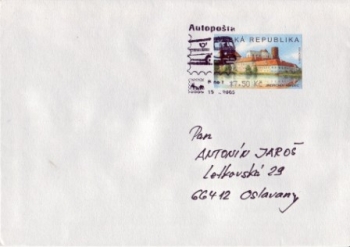 Autopošta
ČESKÁ REPUBLIKA
*7.50 Kč
Pan
ANTONÍN JAROŠ
Letkovská 29
66412 Oslavany